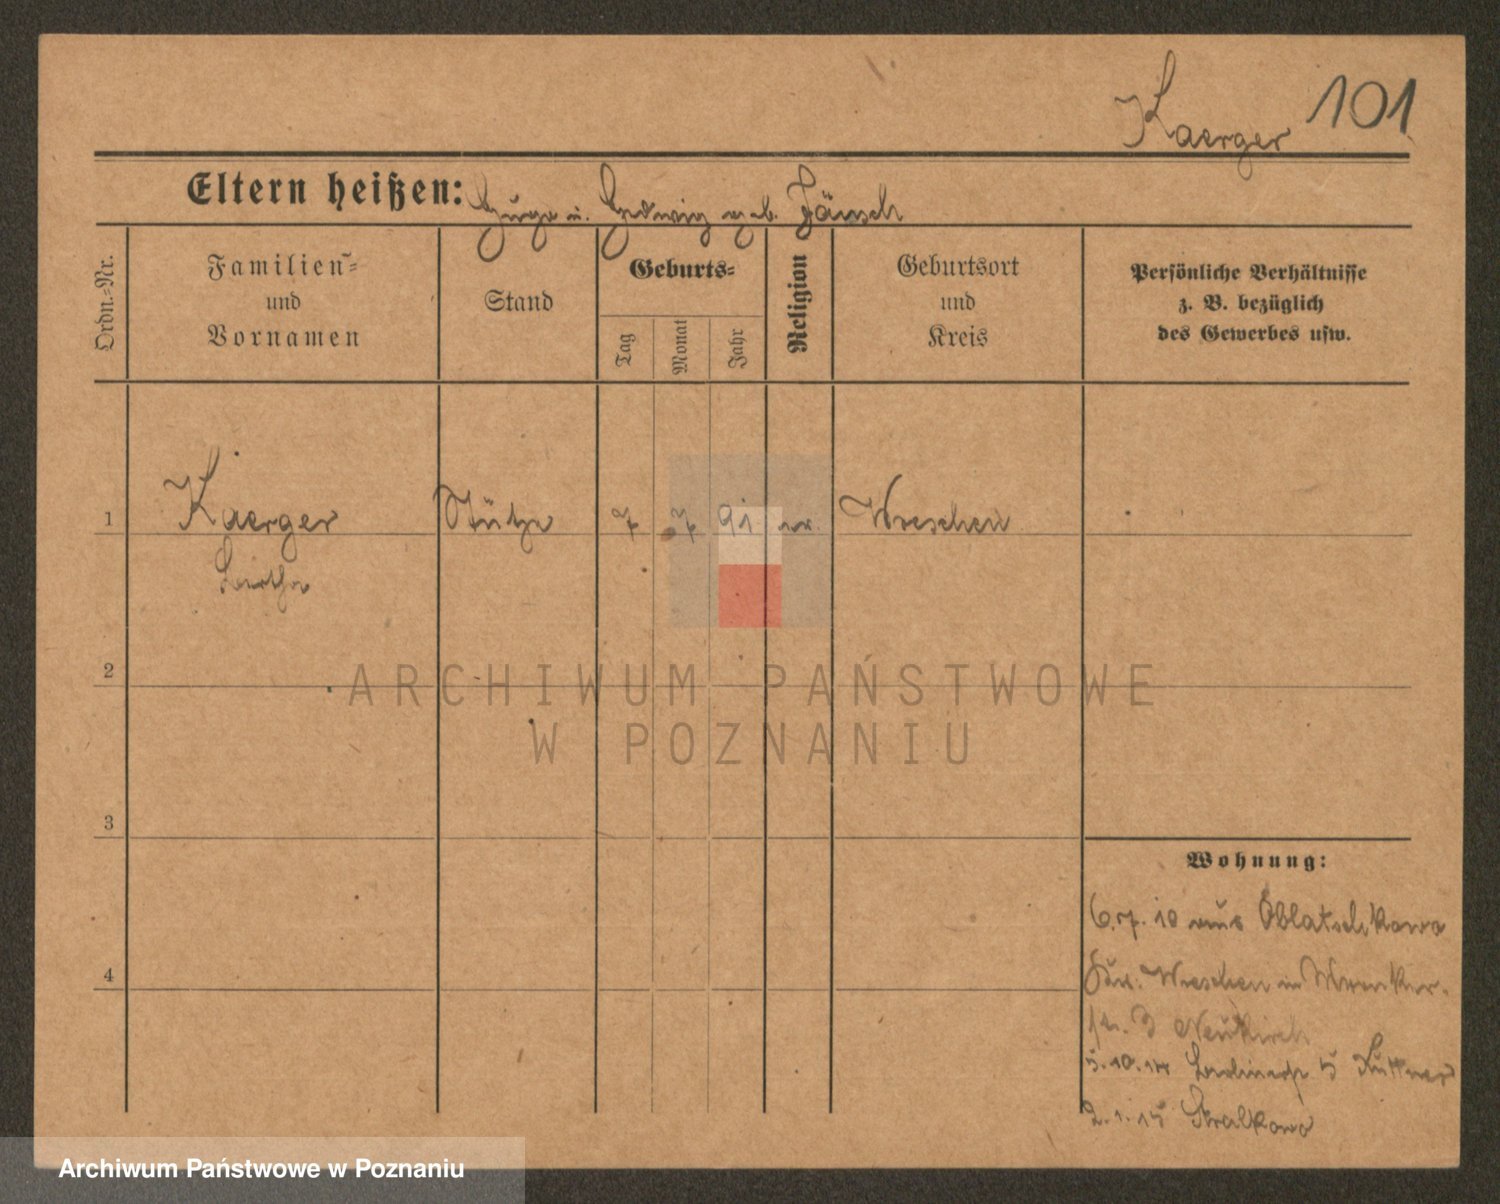 Kaerger 101
Eltern heißen: Hugo u. Hedwig geb. Jänsch
Ordn.-Nr.
Familien-
und
Vornamen
Stand
Geburts-
Tag
Monat
Jahr
Religion
Geburtsort
und
Kreis
Persönliche Verhältnisse
z. B. bezüglich
des Gewerbes usw.
1 Kaerger Stütze 7 7 91 ev. Wreschen
Bertha
2
3
4
Wohnung:
aus Oblatschkowo
Wreschen in
3 Neukirch
5.10.14 5 Kuttner
2.1.15 Stralkowo
ARCHIWUM PAŃSTWOWE
W POZNANIU
Archiwum Państwowe w Poznaniu